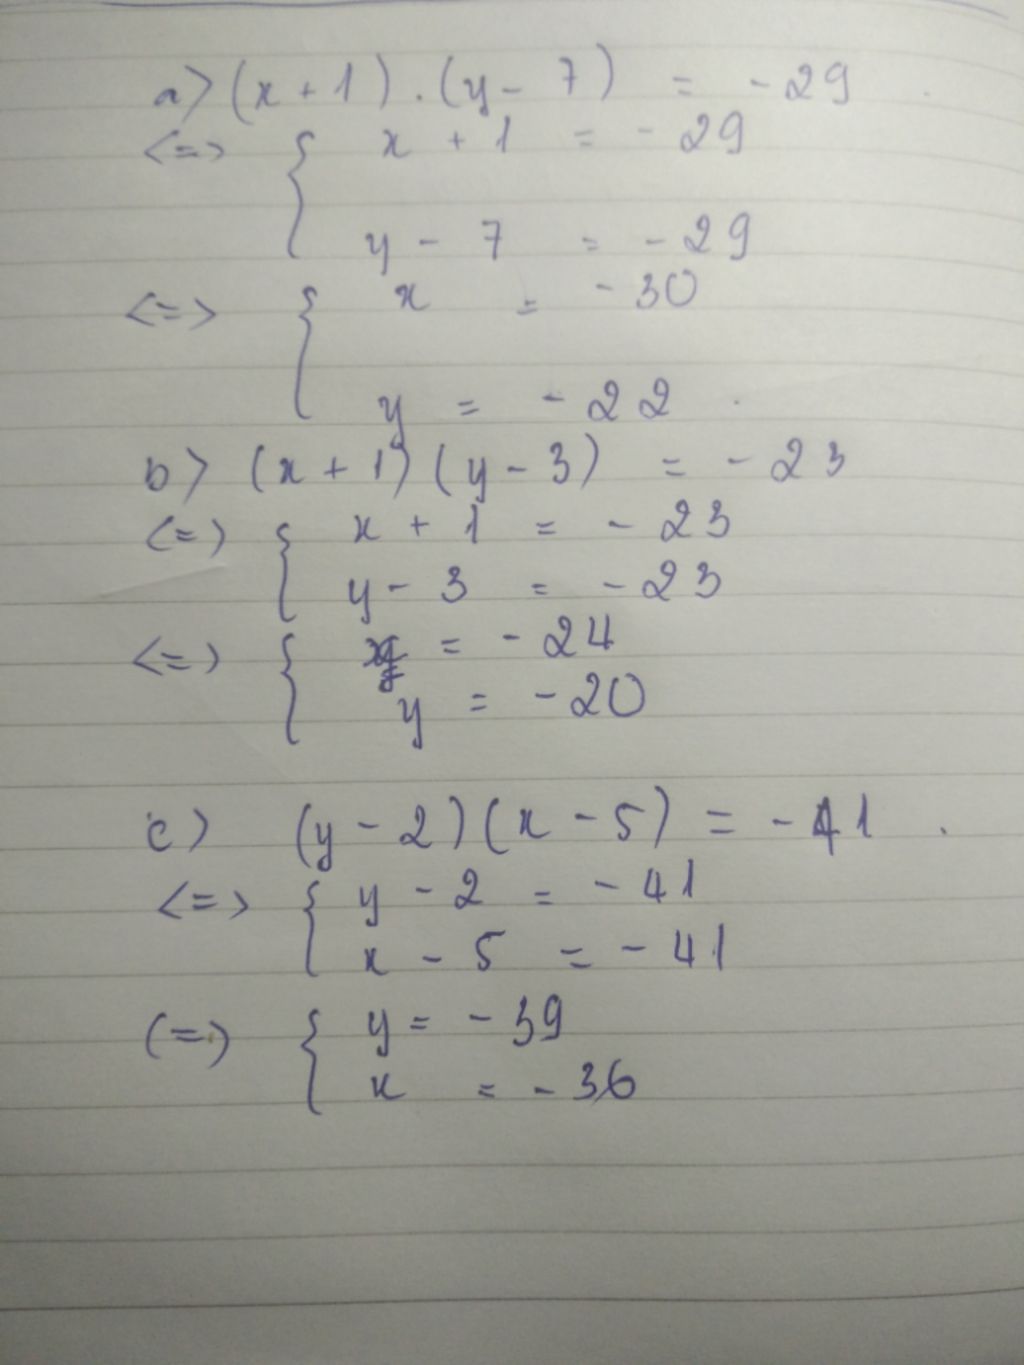 a> (x + 1) . (y - 7) = - 29
<=> { x + 1 = - 29
y - 7 = - 29
<=> { x = - 30
y = - 22 .
b> (x + 1) (y - 3) = - 23
<=> { x + 1 = - 23
y - 3 = - 23
<=> { x = - 24
y = - 20
c) (y - 2) (x - 5) = - 41 .
<=> { y - 2 = - 41
x - 5 = - 41
<=> { y = - 39
x = - 36